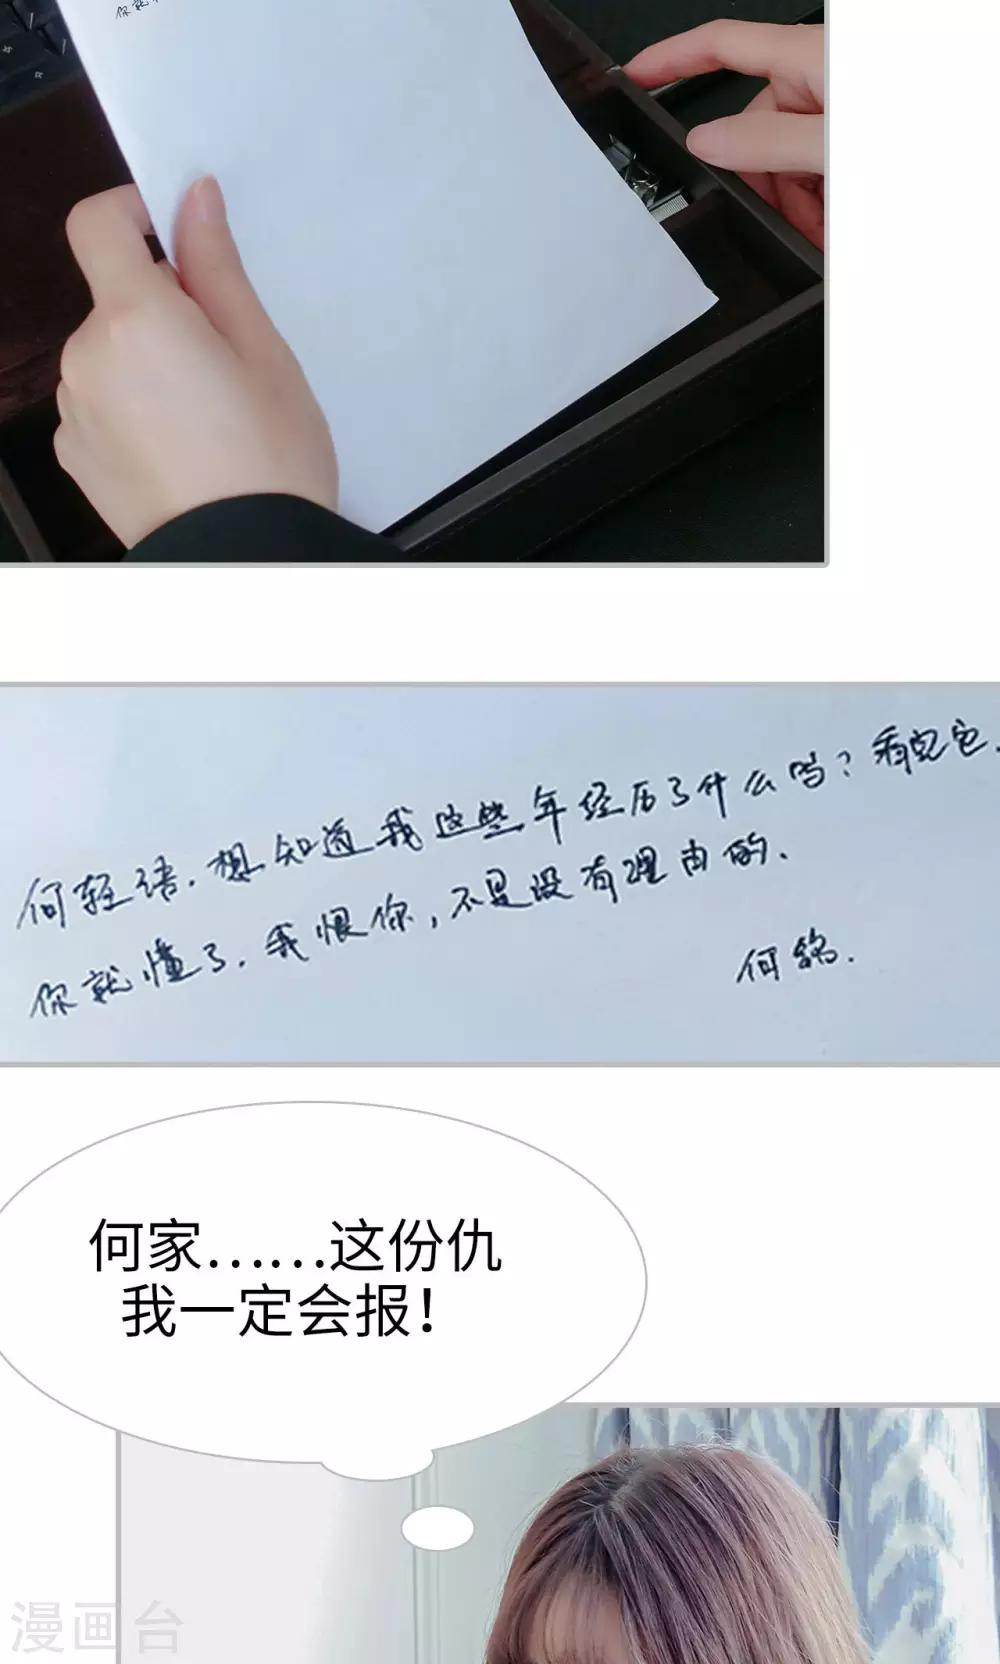 你就
何轻语.想知道我这些年经历了什么吗?看完它.
你就懂了.我恨你,不是没有理由的.
何
何家……这份仇
我一定会报!
漫画台